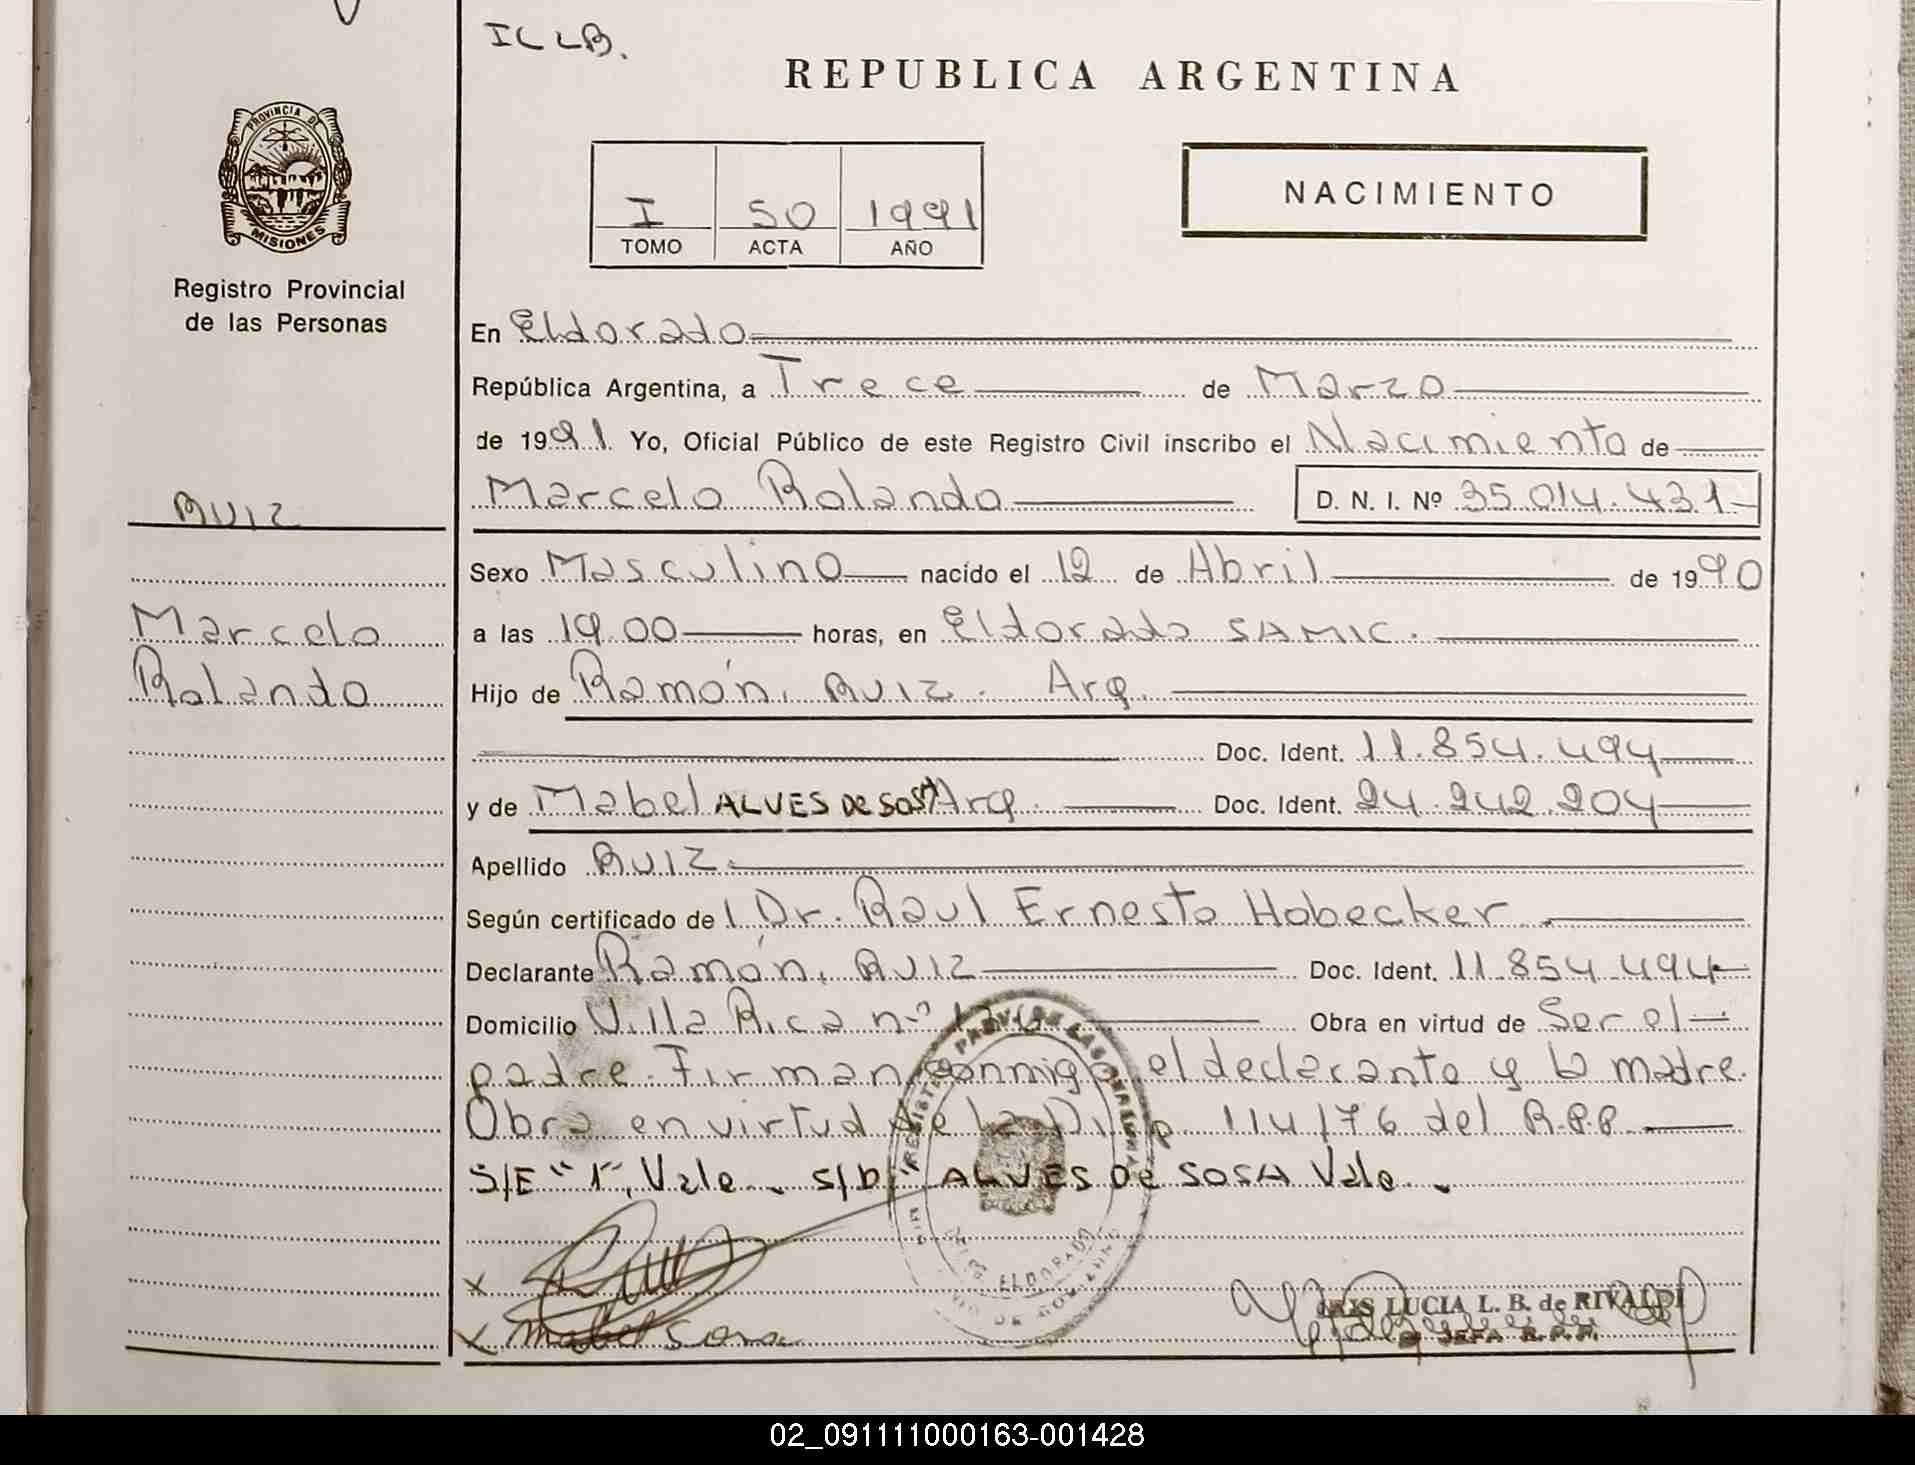 ILLB.
REPUBLICA ARGENTINA
PROVINCIA DE
MISIONES
Registro Provincial
de las Personas
I 50 1991
TOMO ACTA AÑO
NACIMIENTO
En Eldorado
República Argentina, a Trece de Marzo
de 1991. Yo, Oficial Público de este Registro Civil inscribo el Nacimiento de
Marcelo Rolando D. N. I. Nº 35.014.431-
RUIZ
Sexo Masculino nacido el 12 de Abril de 1990
Marcelo
a las 19.00 horas, en Eldorado SAMIC.
Rolando
Hijo de Ramón. RUIZ. Arg.
Doc. Ident. 11.854.494
y de Mabel ALVES DE SOSA Arg. Doc. Ident. 24.242.204
Apellido RUIZ.
Según certificado del Dr. Raul Ernesto Hobecker.
Declarante Ramón. RUIZ Doc. Ident. 11.854.494
Domicilio Villa Rica nº Obra en virtud de Ser el
padre. Firman conmigo el declarante y la madre.
Obra en virtud de la Disp. 114/76 del R.P.P.
S/E "1", Vale. S/b: ALVES DE SOSA Vale.
ELDORADO
x
x Mabel Sosa
IRIS LUCIA L. B. de RIVALDI
JEFA R. P. P.
02_091111000163-001428